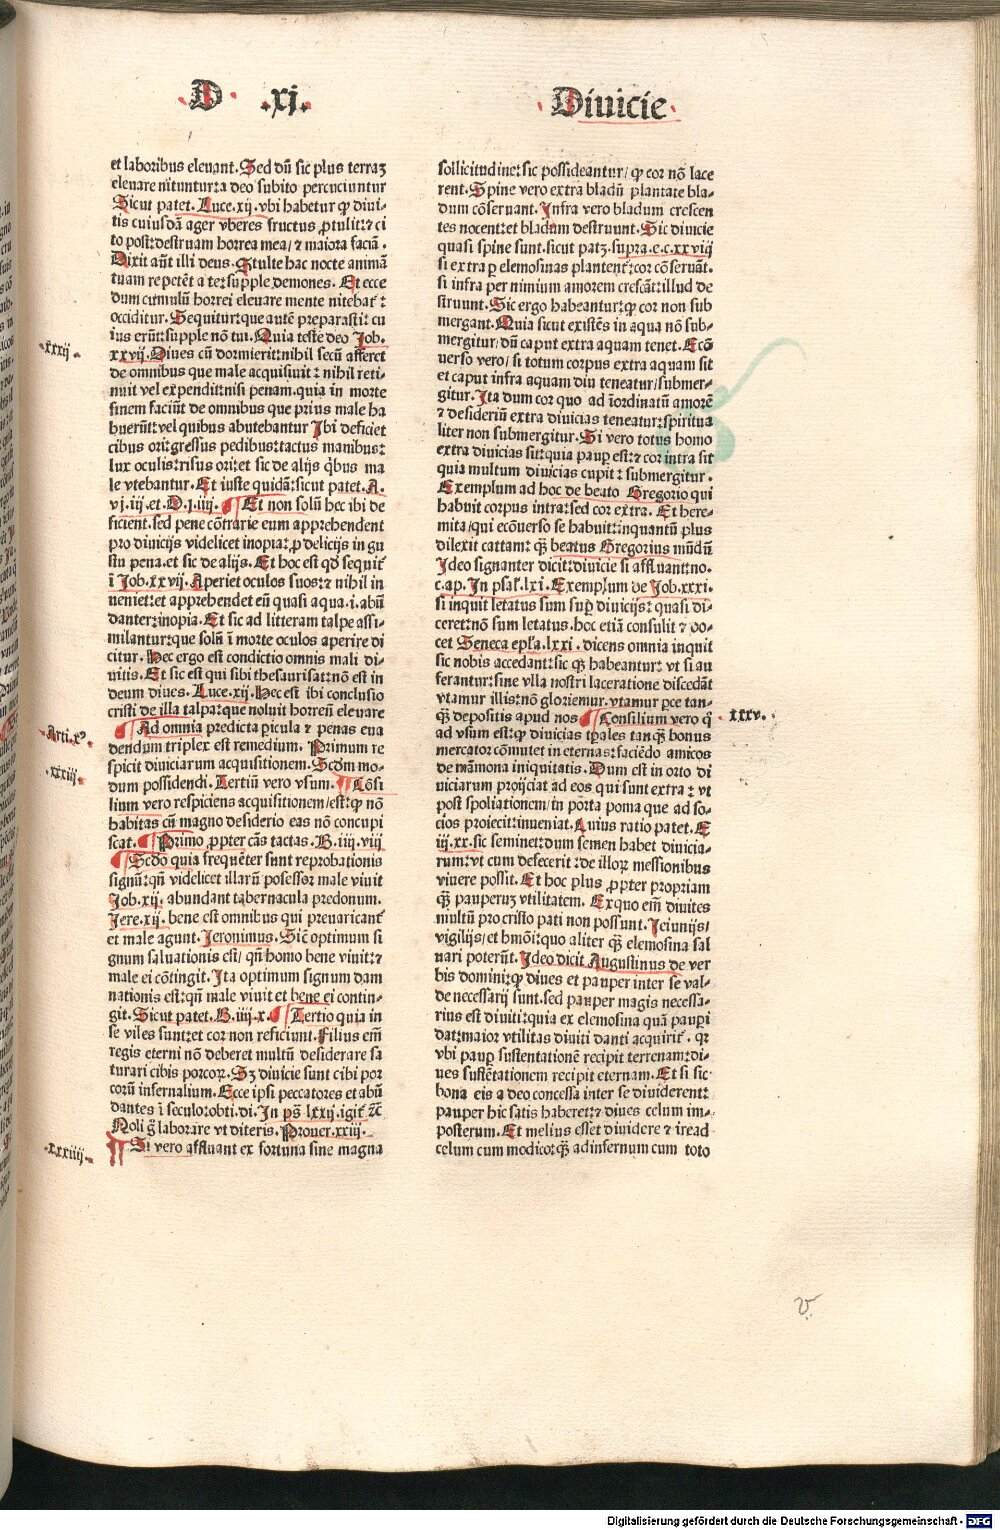 D .xj.
Diuicie
et laboribus eleuant. Sed dũ sic plus terraꝫ
eleuare nituntur: a deo subito percuciuntur
Sicut patet. Luce.xij. vbi habetur ꝙ diui-
tis cuiusdã ager vberes fructus ꝓtulit: ⁊ ci
to post: destruam horrea mea/ ⁊ maiora faciã.
Dixit aũt illi deus. Stulte hac nocte animã
tuam repetẽt a te: supple demones. Et ecce
dum cumulũ horrei eleuare mente nitebat᷑:
occiditur. Sequitur: que autẽ preparasti: cu
ius erũt: supple nõ tui. Quia teste deo Job.
xxvij. Diues cũ dormierit: nihil secũ afferet
de omnibus que male acquisiuit: nihil reti-
nuit vel expendit: nisi penam. quia in morte
finem faciũt de omnibus que prius male ha
buerũt: vel quibus abutebantur Ibi deficiet
cibus ori: gressus pedibus: tactus manibus:
lux oculis: risus ori: et sic de alijs q̃bus ma
le vtebantur. Et iuste quidã: sicut patet. A.
vj.iij.et.D.j.iiij. Et non solũ hec ibi de
ficient. sed pene cõtrarie eum apprehendent
pro diuicijs videlicet inopia: ꝓ delicijs in gu
stu pena. et sic de alijs. Et hoc est qđ sequit᷑
ĩ Job.xxvij. Aperiet oculos suos: ⁊ nihil in
ueniet: et apprehendet eũ quasi aqua.i.abũ
danter: inopia. Et sic ad litteram talpe assi-
milantur: que solũ ĩ morte oculos aperire di
citur. Hec ergo est condictio omnis mali di-
uitis. Et sic est qui sibi thesaurisat: nõ est in
deum diues. Luce.xij. Hec est ibi conclusio
cristi de illa talpa: que noluit horreũ eleuare
Ad omnia predicta picula ⁊ penas eua
dendum triplex est remedium. Primum re
spicit diuiciarum acquisitionem. Scđm mo-
dum possidendi. Tertiũ vero vsum. Cõsi
lium vero respiciens acquisitionem/est: ꝙ nõ
habitas cũ magno desiderio eas nõ concupi
scat. Primo ꝓpter cãs tactas. B.iiij.viij
Scđo quia frequẽter sunt reprobationis
signũ: qñ videlicet illarũ possessor male viuit
Job.xij. abundant tabernacula predonum.
Jere.xij. bene est omnibus qui preuaricant᷑
et male agunt. Jeronimus. Sicẽ optimum si
gnum saluationis est/ qñ homo bene viuit: ⁊
male ei cõtingit. Ita optimum signum dam
nationis est: qñ male viuit et bene ei contin-
git. Sicut patet. B.iiij.x. Tertio quia in
se viles sunt: et cor non reficiunt. Filius em̃
regis eterni nõ deberet multũ desiderare sa
turari cibis porcoꝝ. Sꝫ diuicie sunt cibi por
corũ infernalium. Ecce ipsi peccatores et abũ
dantes ĩ seculo: obti.di. In ps̃ lxxij. igit᷑ ⁊c̃
Noli g̃ laborare vt diteris. Prouer.xxiij.
Si vero affluant ex fortuna sine magna
sollicitudine: sic possideantur/ ꝙ cor nõ lace
rent. Spine vero extra bladũ plantate bla-
dum cõseruant. Infra vero bladum crescen
tes nocent: et bladum destruunt. Sic diuicie
quasi spine sunt. sicut patꝫ. supra.e.c.xxviij
si extra ꝑ elemosinas plantent᷑: cor cõseruãt.
si infra per nimium amorem crescãt: illud de
struunt. Sic ergo habeantur: ꝙ cor non sub
mergant. Quia sicut existẽs in aqua nõ sub-
mergitur/ dũ caput extra aquam tenet. Ecõ
uerso vero/ si totum corpus extra aquam sit
et caput infra aquam diu teneatur/ submer-
gitur. Ita dum cor quo ad ĩordinatũ amorẽ
⁊ desideriũ extra diuicias teneatur: spiritua
liter non submergitur. Si vero totus homo
extra diuicias sit: quia paup est: ⁊ cor intra sit
quia multum diuicias cupit: submergitur.
Exemplum ad hoc de beato Gregorio qui
habuit corpus intra: sed cor extra. Et here-
mita/ qui ecõuerso se habuit: inquantũ plus
dilexit cattam: q̃ꝫ beatus Gregorius mũdũ
Ideo signanter dicit: diuicie si affluant: no.
c.ap. In psal̃.lxi. Exemplum de Job.xxxi.
si inquit letatus sum sup̃ diuicijs: quasi di-
ceret: nõ sum letatus. hoc etiã consulit ⁊ do-
cet Seneca epl̃a.lxxi. dicens omnia inquit
sic nobis accedant: sic qꝫ habeantur: vt si au
ferantur: sine vlla nostri laceratione discedãt
vtamur illis: nõ gloriemur. vtamur ꝑce tan-
q̃ꝫ depositis apud nos Consilium vero q̃
ad vsum est: ꝙ diuicias tꝑales tanq̃ꝫ bonus
mercator cõmutet in eternas: faciẽdo amicos
de mãmona iniquitatis. Dum est in orto di
uiciarum proijciat ad eos qui sunt extra: vt
post spoliationem/ in porta poma que ad so-
cios proiecit: inueniat. Cuius ratio patet. E
iij.xx. sic seminet: dum semen habet diuicia-
rum: vt cum defecerit: de illoꝝ messionibus
viuere possit. Et hoc plus ꝓpter propriam
q̃ꝫ pauperuꝫ vtilitatem. Exquo em̃ diuites
multũ pro cristo pati non possunt. Jeiunijs/
vigilijs/ et hmõi: quo aliter q̃ꝫ elemosina sal
uari poterũt. Ideo dicit Augustinus de ver
bis domini: ꝙ diues et pauper inter se val-
de necessarij sunt. sed pauper magis necessa-
rius est diuiti: quia ex elemosina quã pauꝑi
dat: maior vtilitas diuiti danti acquirit᷑. qꝛ
vbi paup̃ sustentationẽ recipit terrenam: di-
ues sustẽtationem recipit eternam. Et si sic
bona eis a deo concessa inter se diuiderent:
pauper hic satis haberet: ⁊ diues celum im-
posterum. Et melius esset diuidere ⁊ iread
celum cum modico: q̃ꝫ ad infernum cum toto
.xxxij.
Arti.xº.
.xxxiij.
.xxxiiij.
.xxxv.
v.
Digitalisierung gefördert durch die Deutsche Forschungsgemeinschaft - DFG